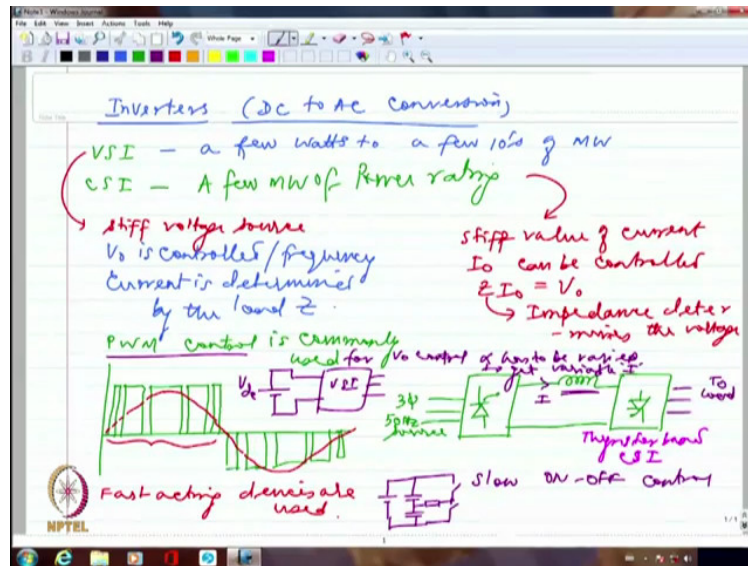 Note1 - Windows Journal
File Edit View Insert Actions Tools Help
Whole Page
B I
Note Title
Inverters (DC to AC Conversion)
VSI - a few watts to a few 10's of MW
CSI - A few MW of Power rating
stiff voltage source
Vo is controlled/frequency
Current is determined
by the load Z.
stiff value of current
Io can be controlled
Z Io = Vo
Impedance deter
-mines the voltage
PWM control is commonly
used for Vo control
α has to be varied
to get variable I.
Vdc
VSI
3φ
50Hz
source
I
To
load
Thyristor based
CSI
Fast acting devices are
used.
Slow ON-OFF control
NPTEL
1/1
1